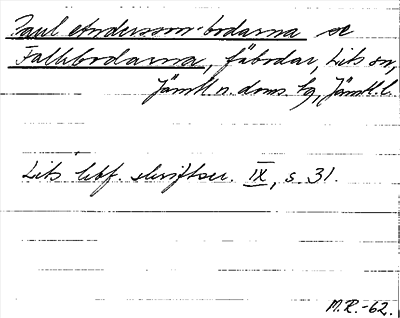 Paul Andersson-bodarna se
Falkbodarna, fäbodar, Lits sn,
Jämtl. n. doms. tg, Jämtl. l.
Lits hbf. skriftser. IX, s. 31.
M.R.-62.